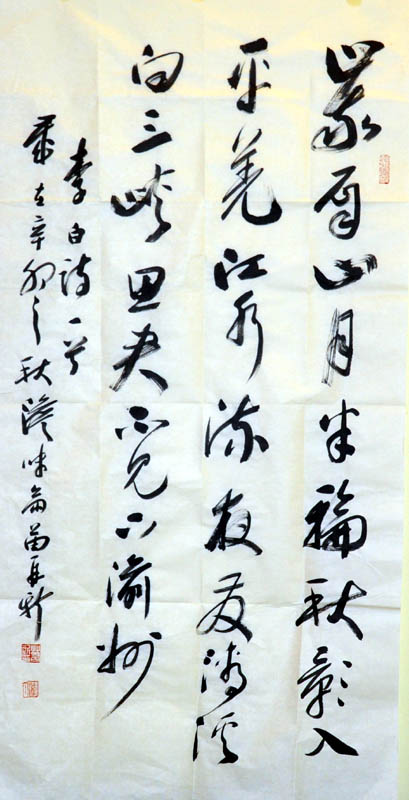 峩眉山月半輪秋影入
平羌江水流夜發清溪
向三峽思君不見下渝州
李白詩一首
歲在辛卯之秋澹味斋苗再新